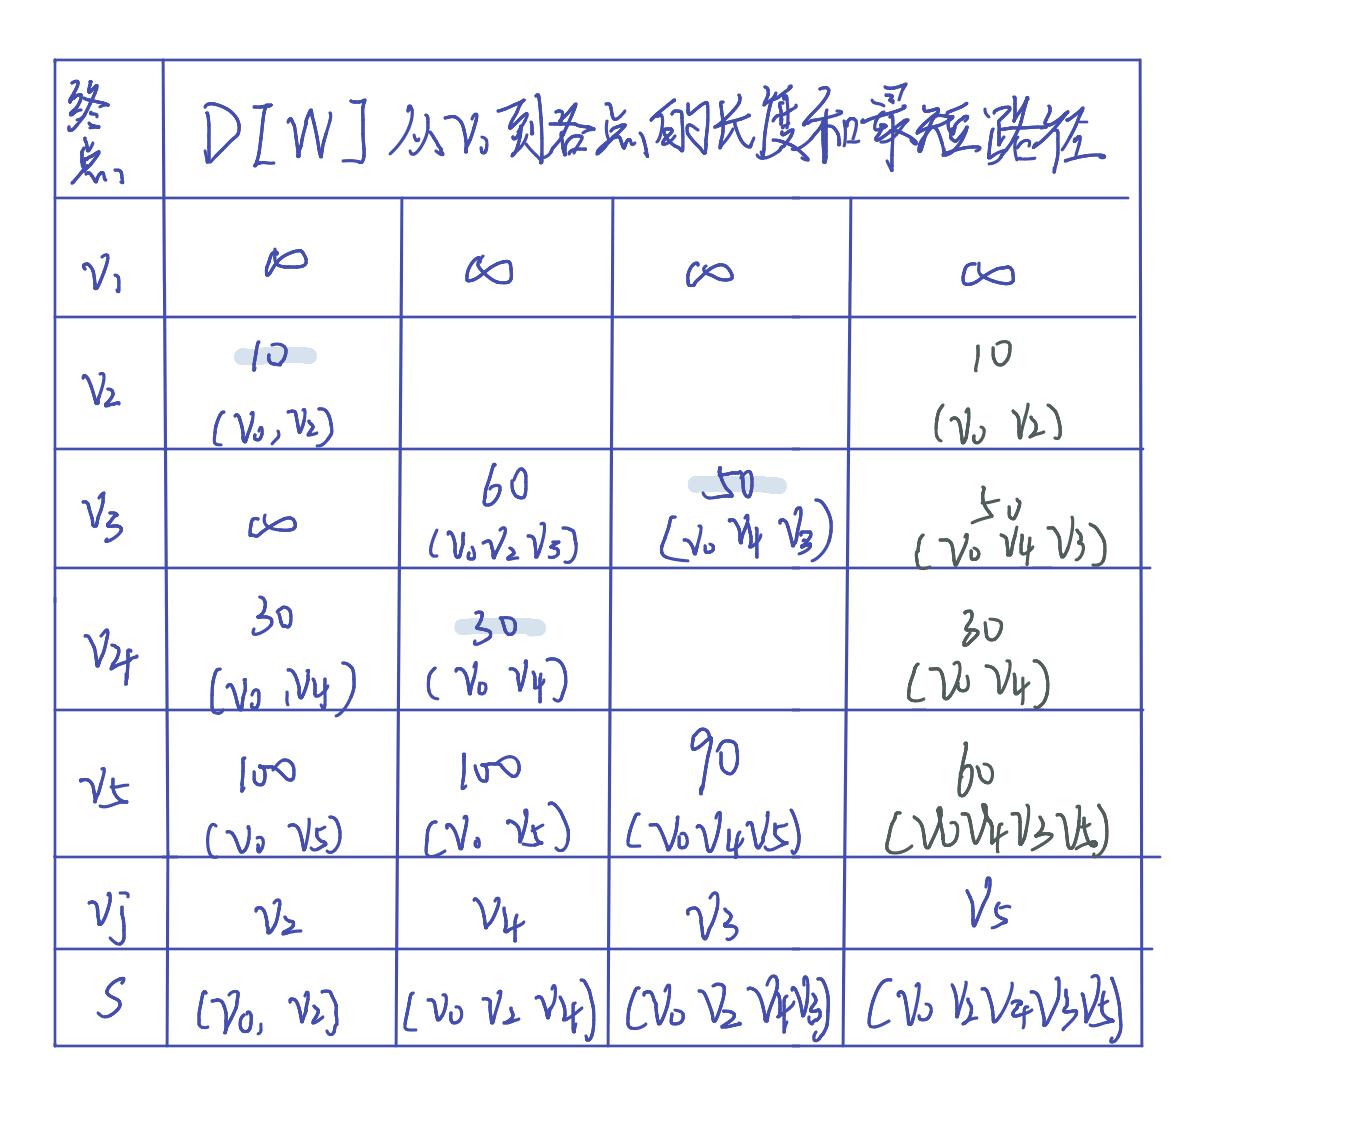 终点 D[W] 从V0到各点的长度和最短路径
V1 ∞ ∞ ∞ ∞
V2 10 10
(V0, V2) (V0 V2)
V3 ∞ 60 50 50
(V0 V2 V3) (V0 V4 V3) (V0 V4 V3)
V4 30 30 30
(V0, V4) (V0 V4) (V0 V4)
V5 100 100 90 60
(V0 V5) (V0 V5) (V0 V4 V5) (V0 V4 V3 V5)
Vj V2 V4 V3 V5
S (V0, V2) (V0 V2 V4) (V0 V2 V4 V3) (V0 V2 V4 V3 V5)